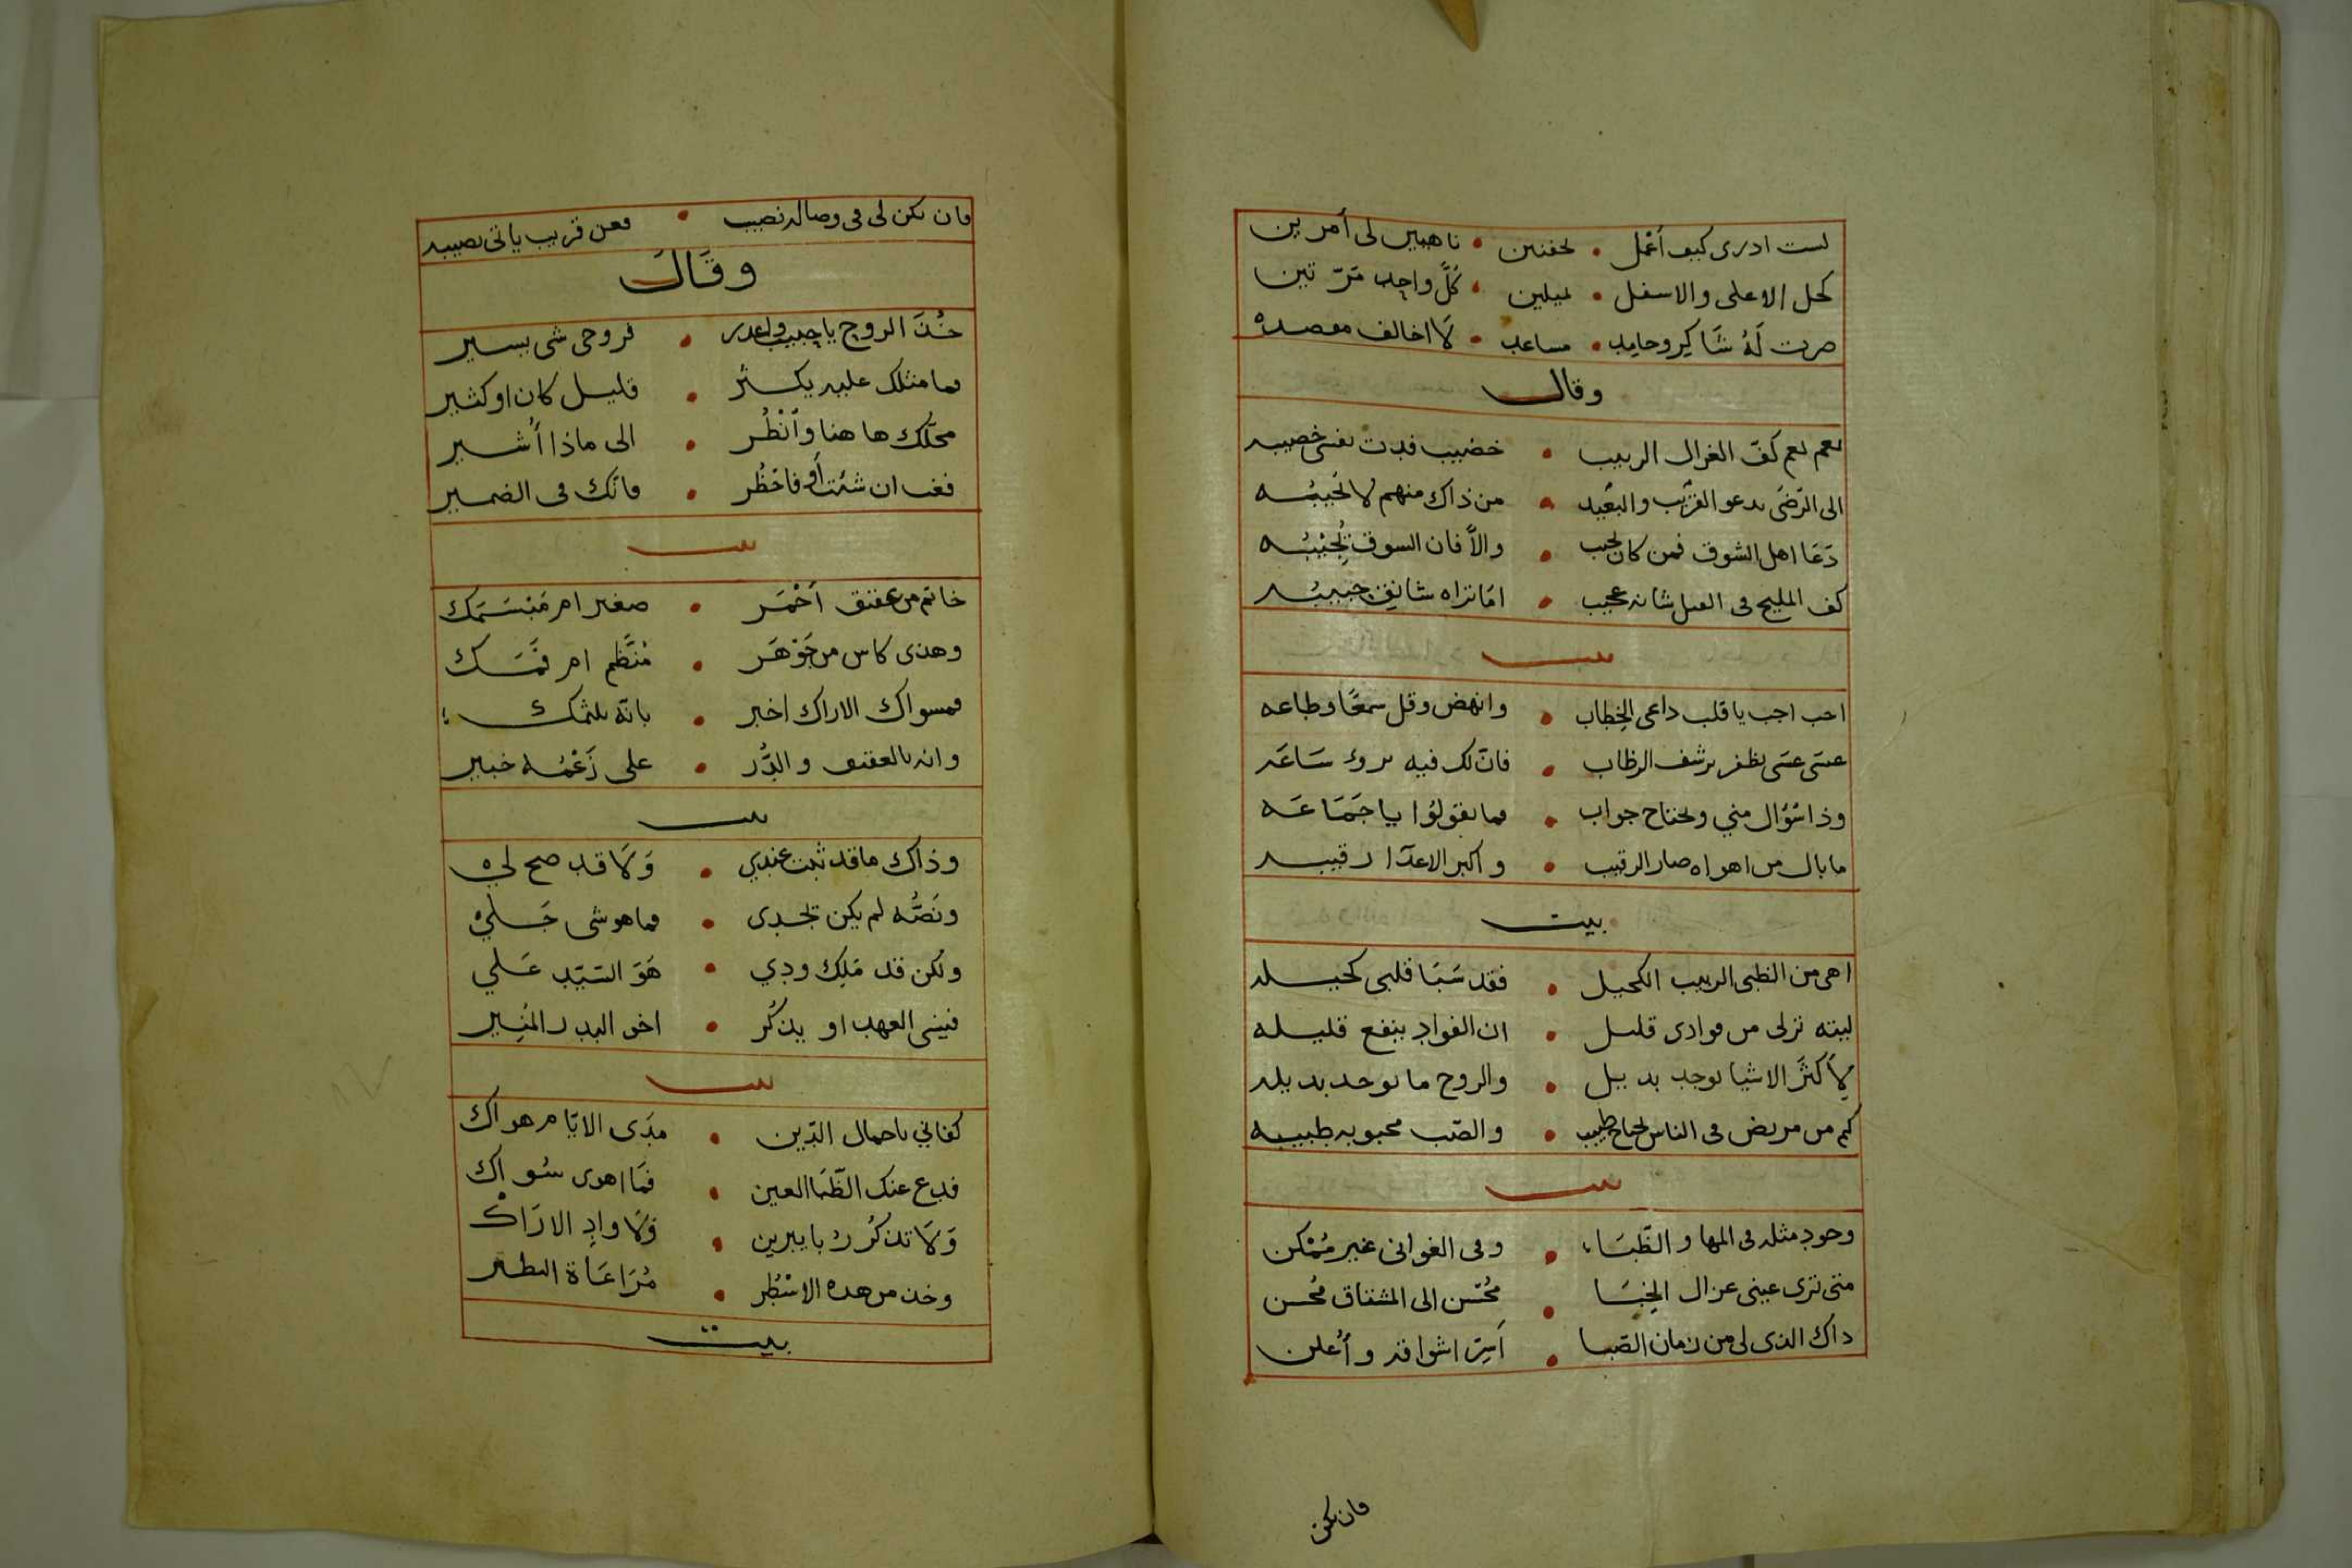 لست ادرى كيف أعمل • لحفنين • ناهيين لى أمرين
كحل الاعلى والاسفل • لميلين • كلّ واحد مرّتين
صرت لَهُ شَاكِر وحامِد • مساعد • لَا اخالف مقصده
وقال
نعم نعم كفّ الغزال الربيب • خضيب فدت نفسى خصيبه
الى الرّضَى يدعو القريب والبَعيد • من ذاك منهم لا نجيبُه
دَعَا اهل الشوق فمن كان يحب • والاّ فان السوق تُجيْبُه
كف المليح فى القبل شانه عجيب • امَا تراه شانقٍ حبيبُه
بيت
اجب اجب يا قلب داعى الخِطاب • وانهض وقل سَمعًا وطاعه
عسَى عسَى تظفر برشف الرظاب • فانّ لك فيه بروك سَاعَه
وذا سُؤال مني ويحتاج جواب • فما تقولوُا يا جَمَاعَه
ما بال من اهواه صار الرقيب • واكبر الاعدَا رقيبه
بيت
اهى من الظبى الربيب الكحيل • فقد سَبَا قلبى كحيله
ليته ترلى من فوادى قليل • ان الفوادِ ينفع قليله
لِأَكثَرَ الاشيا يوجد بديل • والروح ما يوجد بديله
كم من مريض فى الناس يحتاج طبيب • والصّب محبوبه طبيبه
بيت
وجودِ مثله فى المها والظّبَاء • وفى الغوانى غير مُمْكن
متى ترى عينى غزال الخِبَا • مُحّسن الى المشتاق مُحسن
ذاك الذى لى من زمان الصّبا • اَسِرّ اشواقه وأُعلن
فان يكن
فان يكن لى فى وصاله نصيب • فعن قريب ياتى نصيبه
وقَالَ
خُذَ الروح يا حبيب واعذر • فروحى شى يسير
فما مثلك عليه يكثُر • قليل كان او كثير
محلّك ها هنا وأنْظُر • الى ماذا أُشير
فغب ان شئت أَو فاحْظُر • فانّك فى الضمير
بيت
خاتم من عقيق اَحْمَر • صغير ام مَبْسَمَك
وهذى كاس من جَوْهَر • مُنَظّم ام فَمَك
فمسواك الاراك اخبر • بانّه يلثمك
وانه بالعقيق والدُّر • على زَعْمُه خبير
بيت
وذاك ما قد ثبت عِندِي • وَلَا قد صح لى
ونَصُّه لم يكن يُجْدى • فما هو شى جَلى
ولكن قد مَلِك ودِي • هَوَ السَيّد عَلي
فينسى العهد او يذكُر • اخو البدر المُنِير
بيت
كفاني يا جمال الدّين • مدَى الايّام هواك
فدع عنك الظّبَا العين • فمَا اهوى سُواك
وَلَا تذكُر ربا يبرين • وَلَا وادِ الارَاكْ
وخذ من هذه الاسْطُر • مُرَاعَاة النظير
بيت